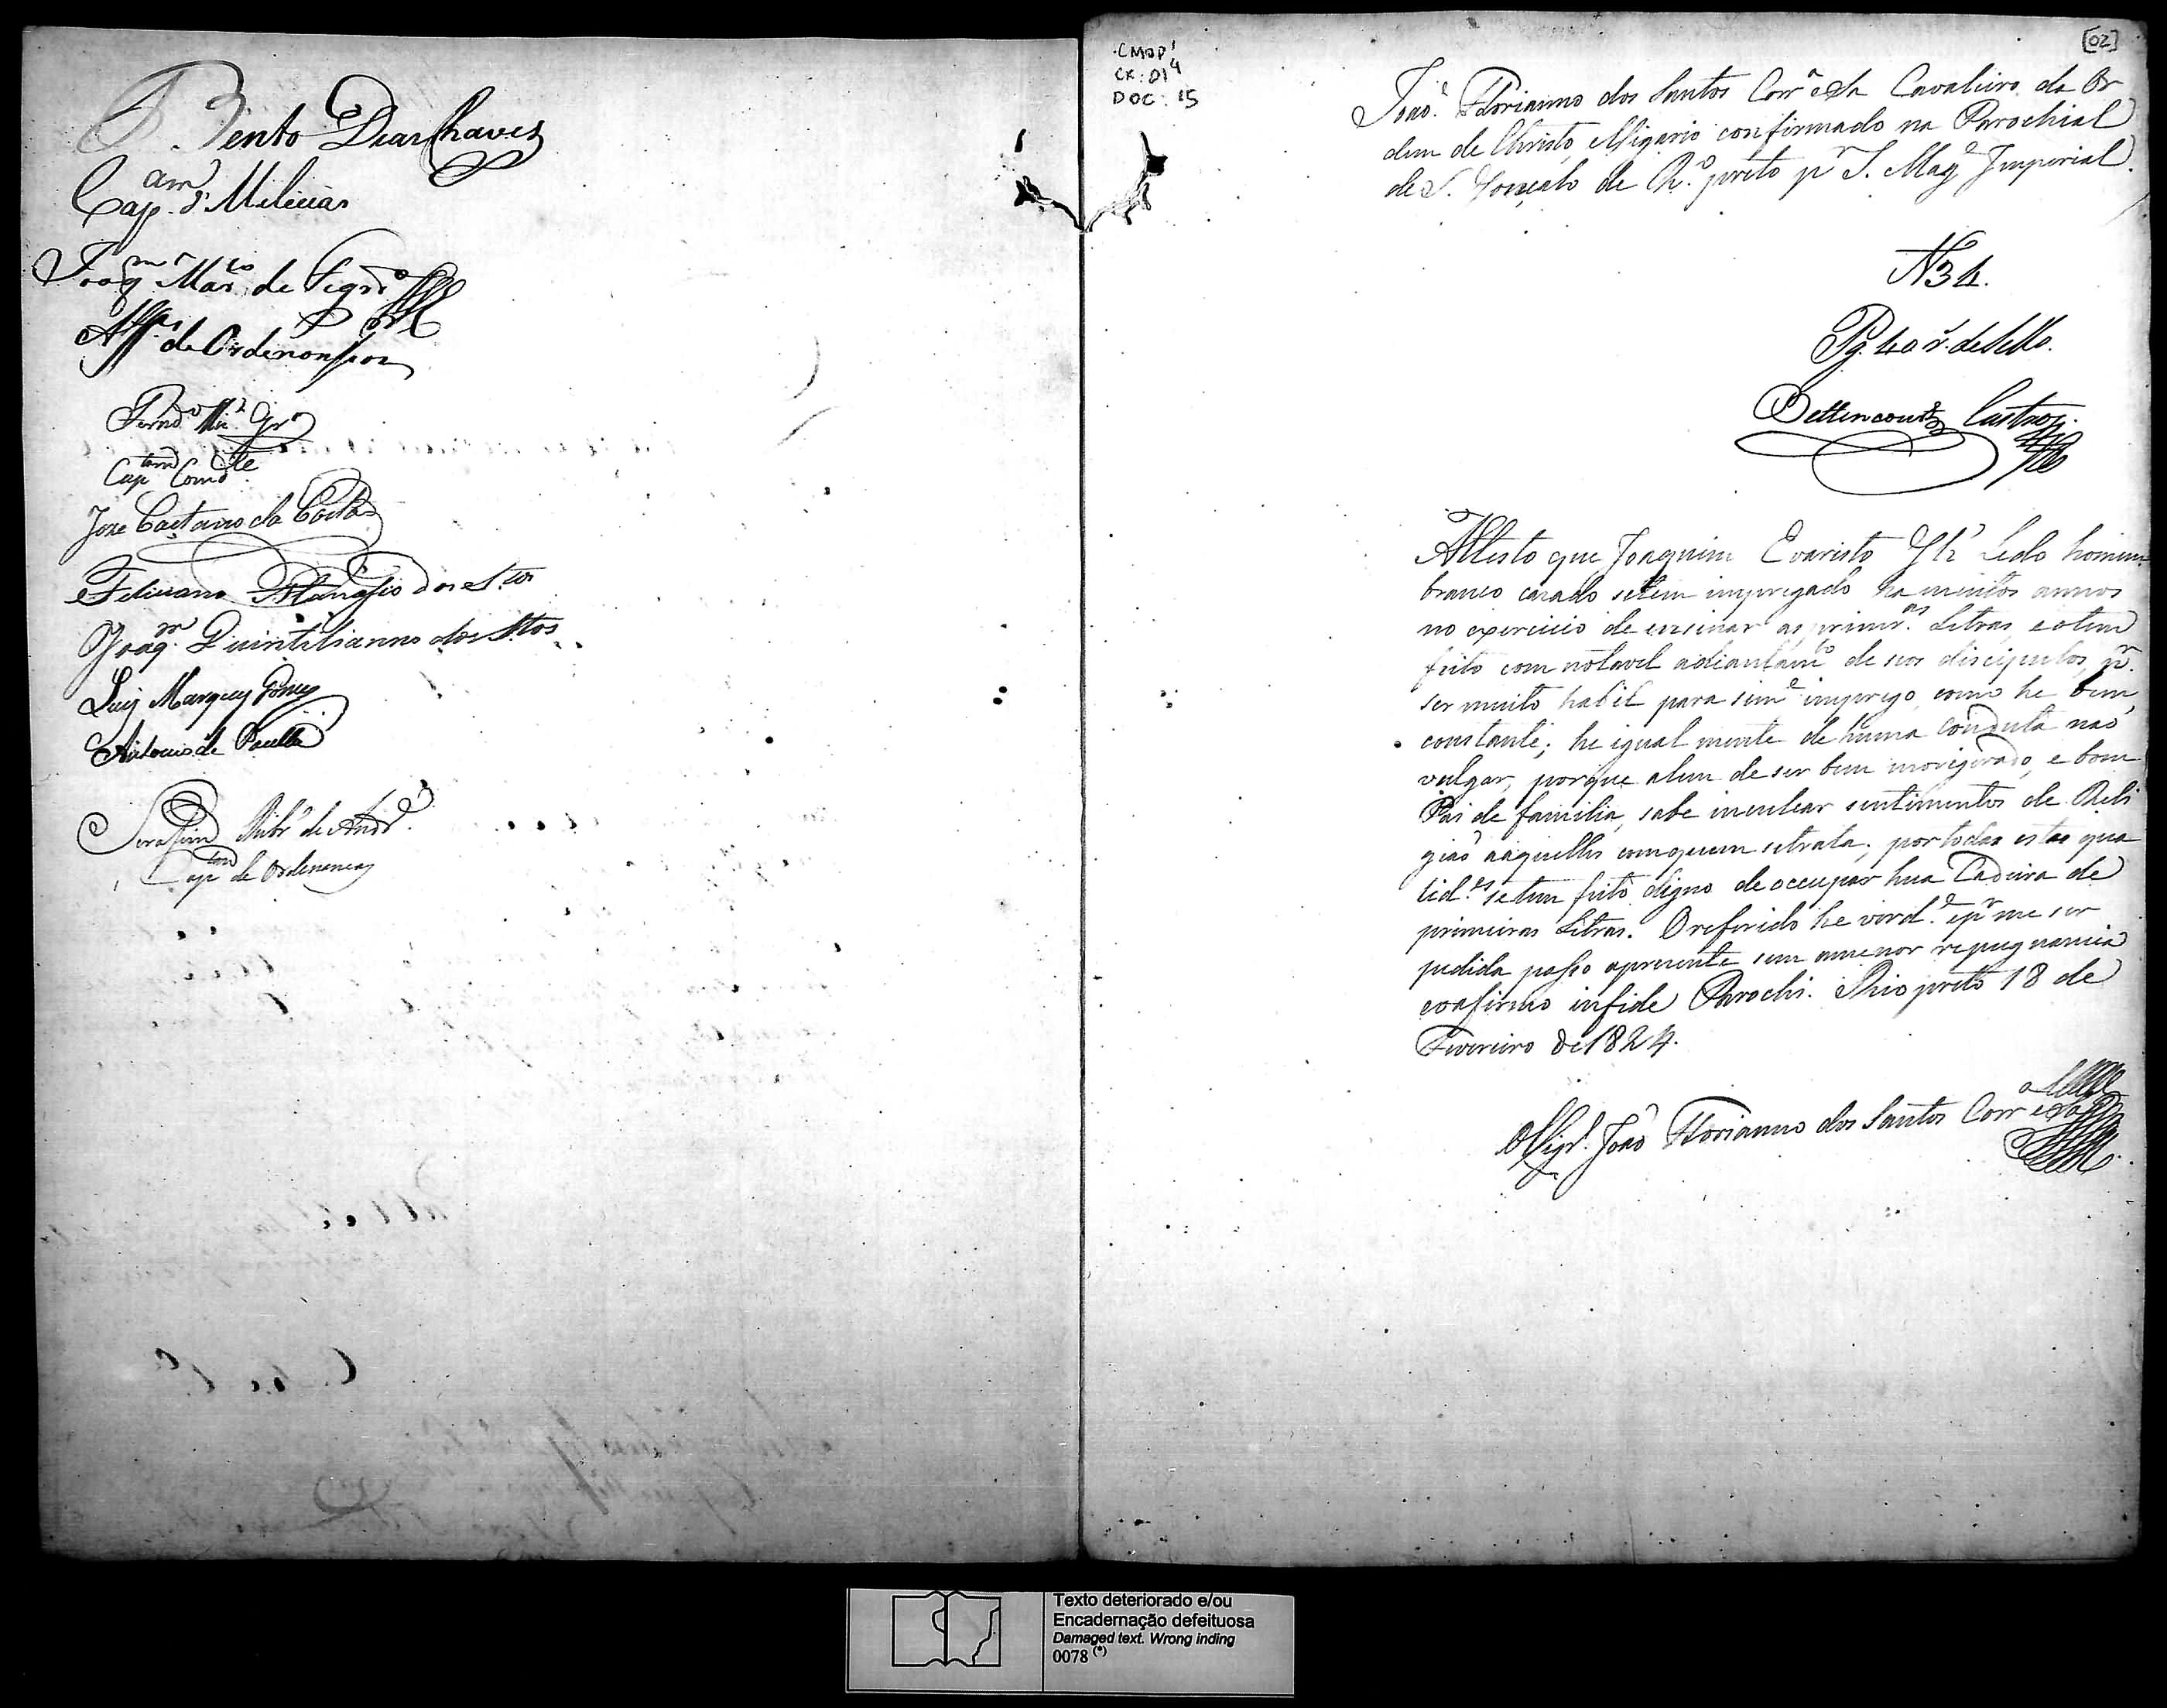 Bento Dias Chaves
Cap.am d' Milicias
Joaq.m Mar.s de Figrdo
Alf.es de Ordenonsas
Fernd.o
Cap.tam Comd.te
Joze Caetano da Costa
Feliciano Atanasio dos S.tos
Joaq.m Quintilianno dos Stos
Luis Marques Gomes
Antonio de Paulla
Serafim Ribr.o de Andr.e
Cap.tam de Ordenancas
CMOP
CX: 014
DOC: 15
[02]
João Florianno dos Santos Corr.a e Sá Cavaleiro da Or
dem de Christo, e Vigario confirmado na Parochial
de S. Gonçalo do R.o preto p.r S. Mag.e Imperial.
N 34.
Pg. 40 r.s de sello.
Bettencourt Castro
Attesto que Joaquim Evaristo Ledo homem
branco cazado setem impregado ha muitos annos
no exercicio de ensinar as primr.as Letras, e otem
feito com notavel adiantam.to de seos discipulos, p.r
ser muito habil para sim.e imprego, como he bem
constante; he igual mente de huma conduta naõ
vulgar, porque alem de ser bem morigerado, e bom
Pai de familia, sabe inculcar sentimentos de Reli
giaõ aaquelles comquem setrata; por todas estas qua
lid.es setem feito digno de occupar hua Cadeira de
primeiras Letras. O referido he verd.e e p.r me ser
pedida passo apresente sem amenor repugnancia
confirmo infide Parochi. Rio preto 18 de
Fevereiro de 1824.
O Vigr.o João Florianno dos Santos Corr.a e Sá
Texto deteriorado e/ou
Encadernação defeituosa
Damaged text. Wrong inding
0078 (*)